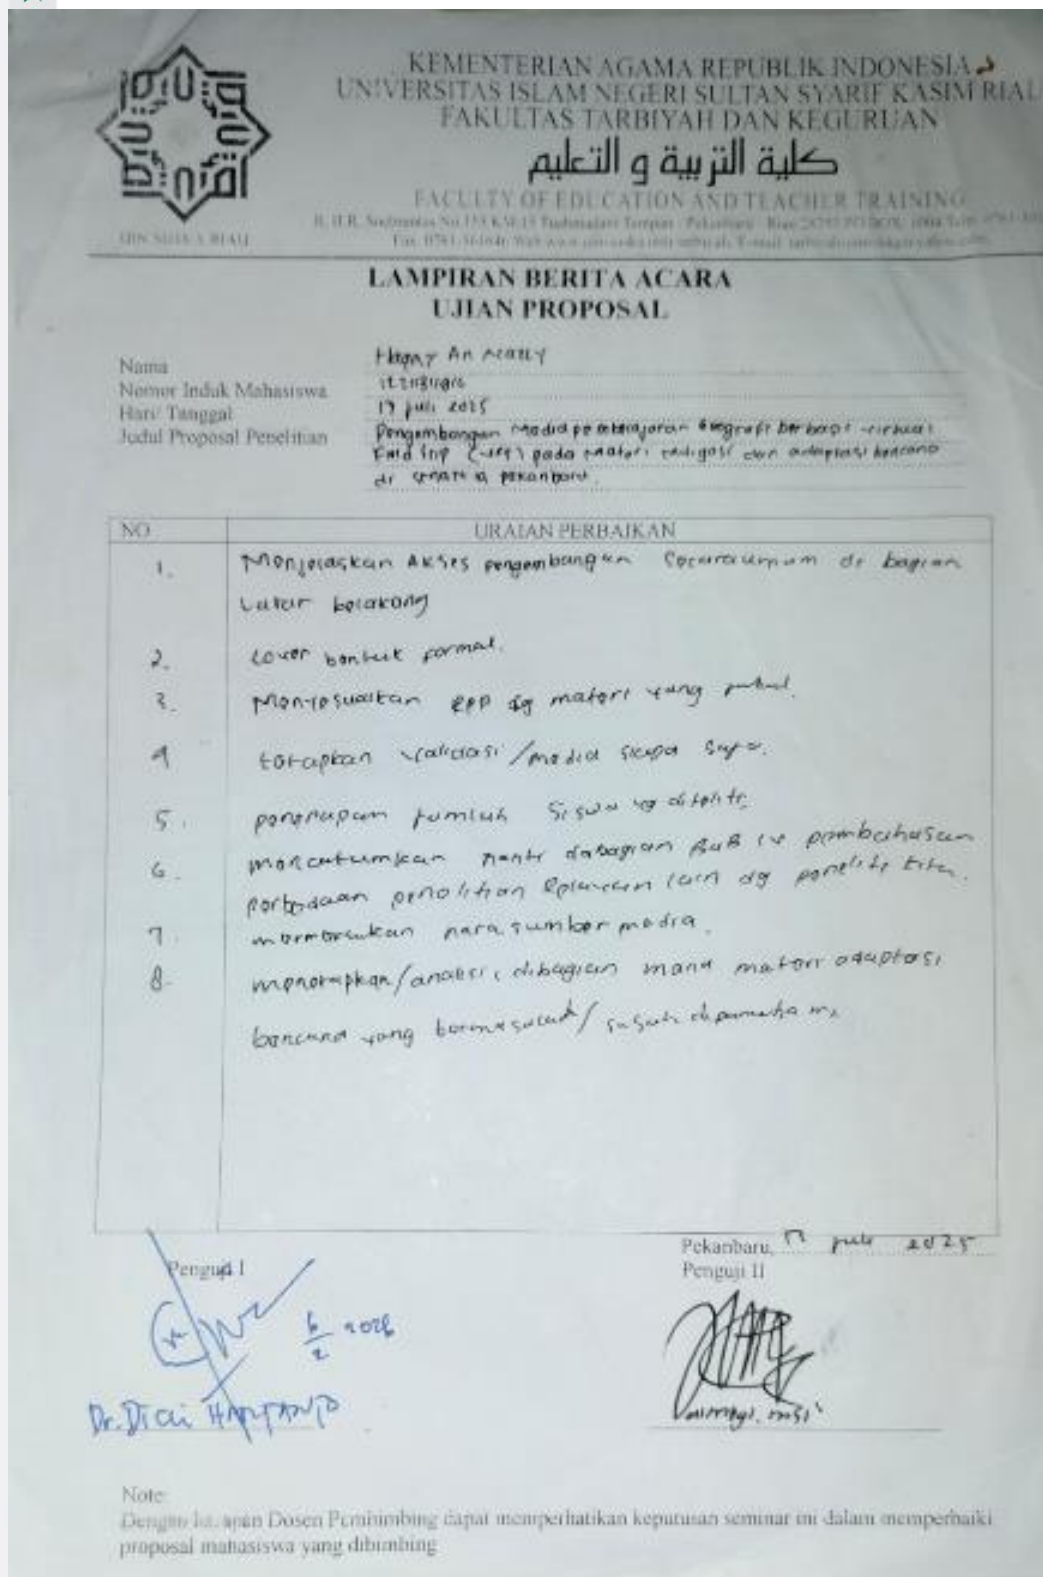 KEMENTERIAN AGAMA REPUBLIK INDONESIA
UNIVERSITAS ISLAM NEGERI SULTAN SYARIF KASIM RIAU
FAKULTAS TARBIYAH DAN KEGURUAN
كلية التربية و التعليم
FACULTY OF EDUCATION AND TEACHER TRAINING
UIN SUSKA RIAU
LAMPIRAN BERITA ACARA
UJIAN PROPOSAL
Nama
Nomor Induk Mahasiswa
Hari/ Tanggal 17 juli 2025
Judul Proposal Penelitian Pengembangan Media pembelajaran Geografi berbasis virtual
Field trip pada materi mitigasi dan adaptasi bencana
di Pekanbaru.
NO URAIAN PERBAIKAN
1. Menjelaskan Akses pengembangan secara umum di bagian
Latar belakang
2. Cover bentuk formal.
3. Menyesuaikan RPP dg materi yang
4 tetapkan validasi/media siapa saja.
5. penerapan jumlah siswa yg diteliti.
6. mencantumkan nanti dibagian BAB IV pembahasan
perbedaan penelitian lain dg
7. nara sumber media.
8. menetapkan/analisi, dibagian mana materi adaptasi
bencana yang bermasalah/ susah
Pekanbaru, 17 juli 2025
Penguji I Penguji II
6/2 2026
Dr. Dicki HARTANTO
Note:
Dengan harapan Dosen Pembimbing dapat memperhatikan keputusan seminar ini dalam memperbaiki
proposal mahasiswa yang dibimbing